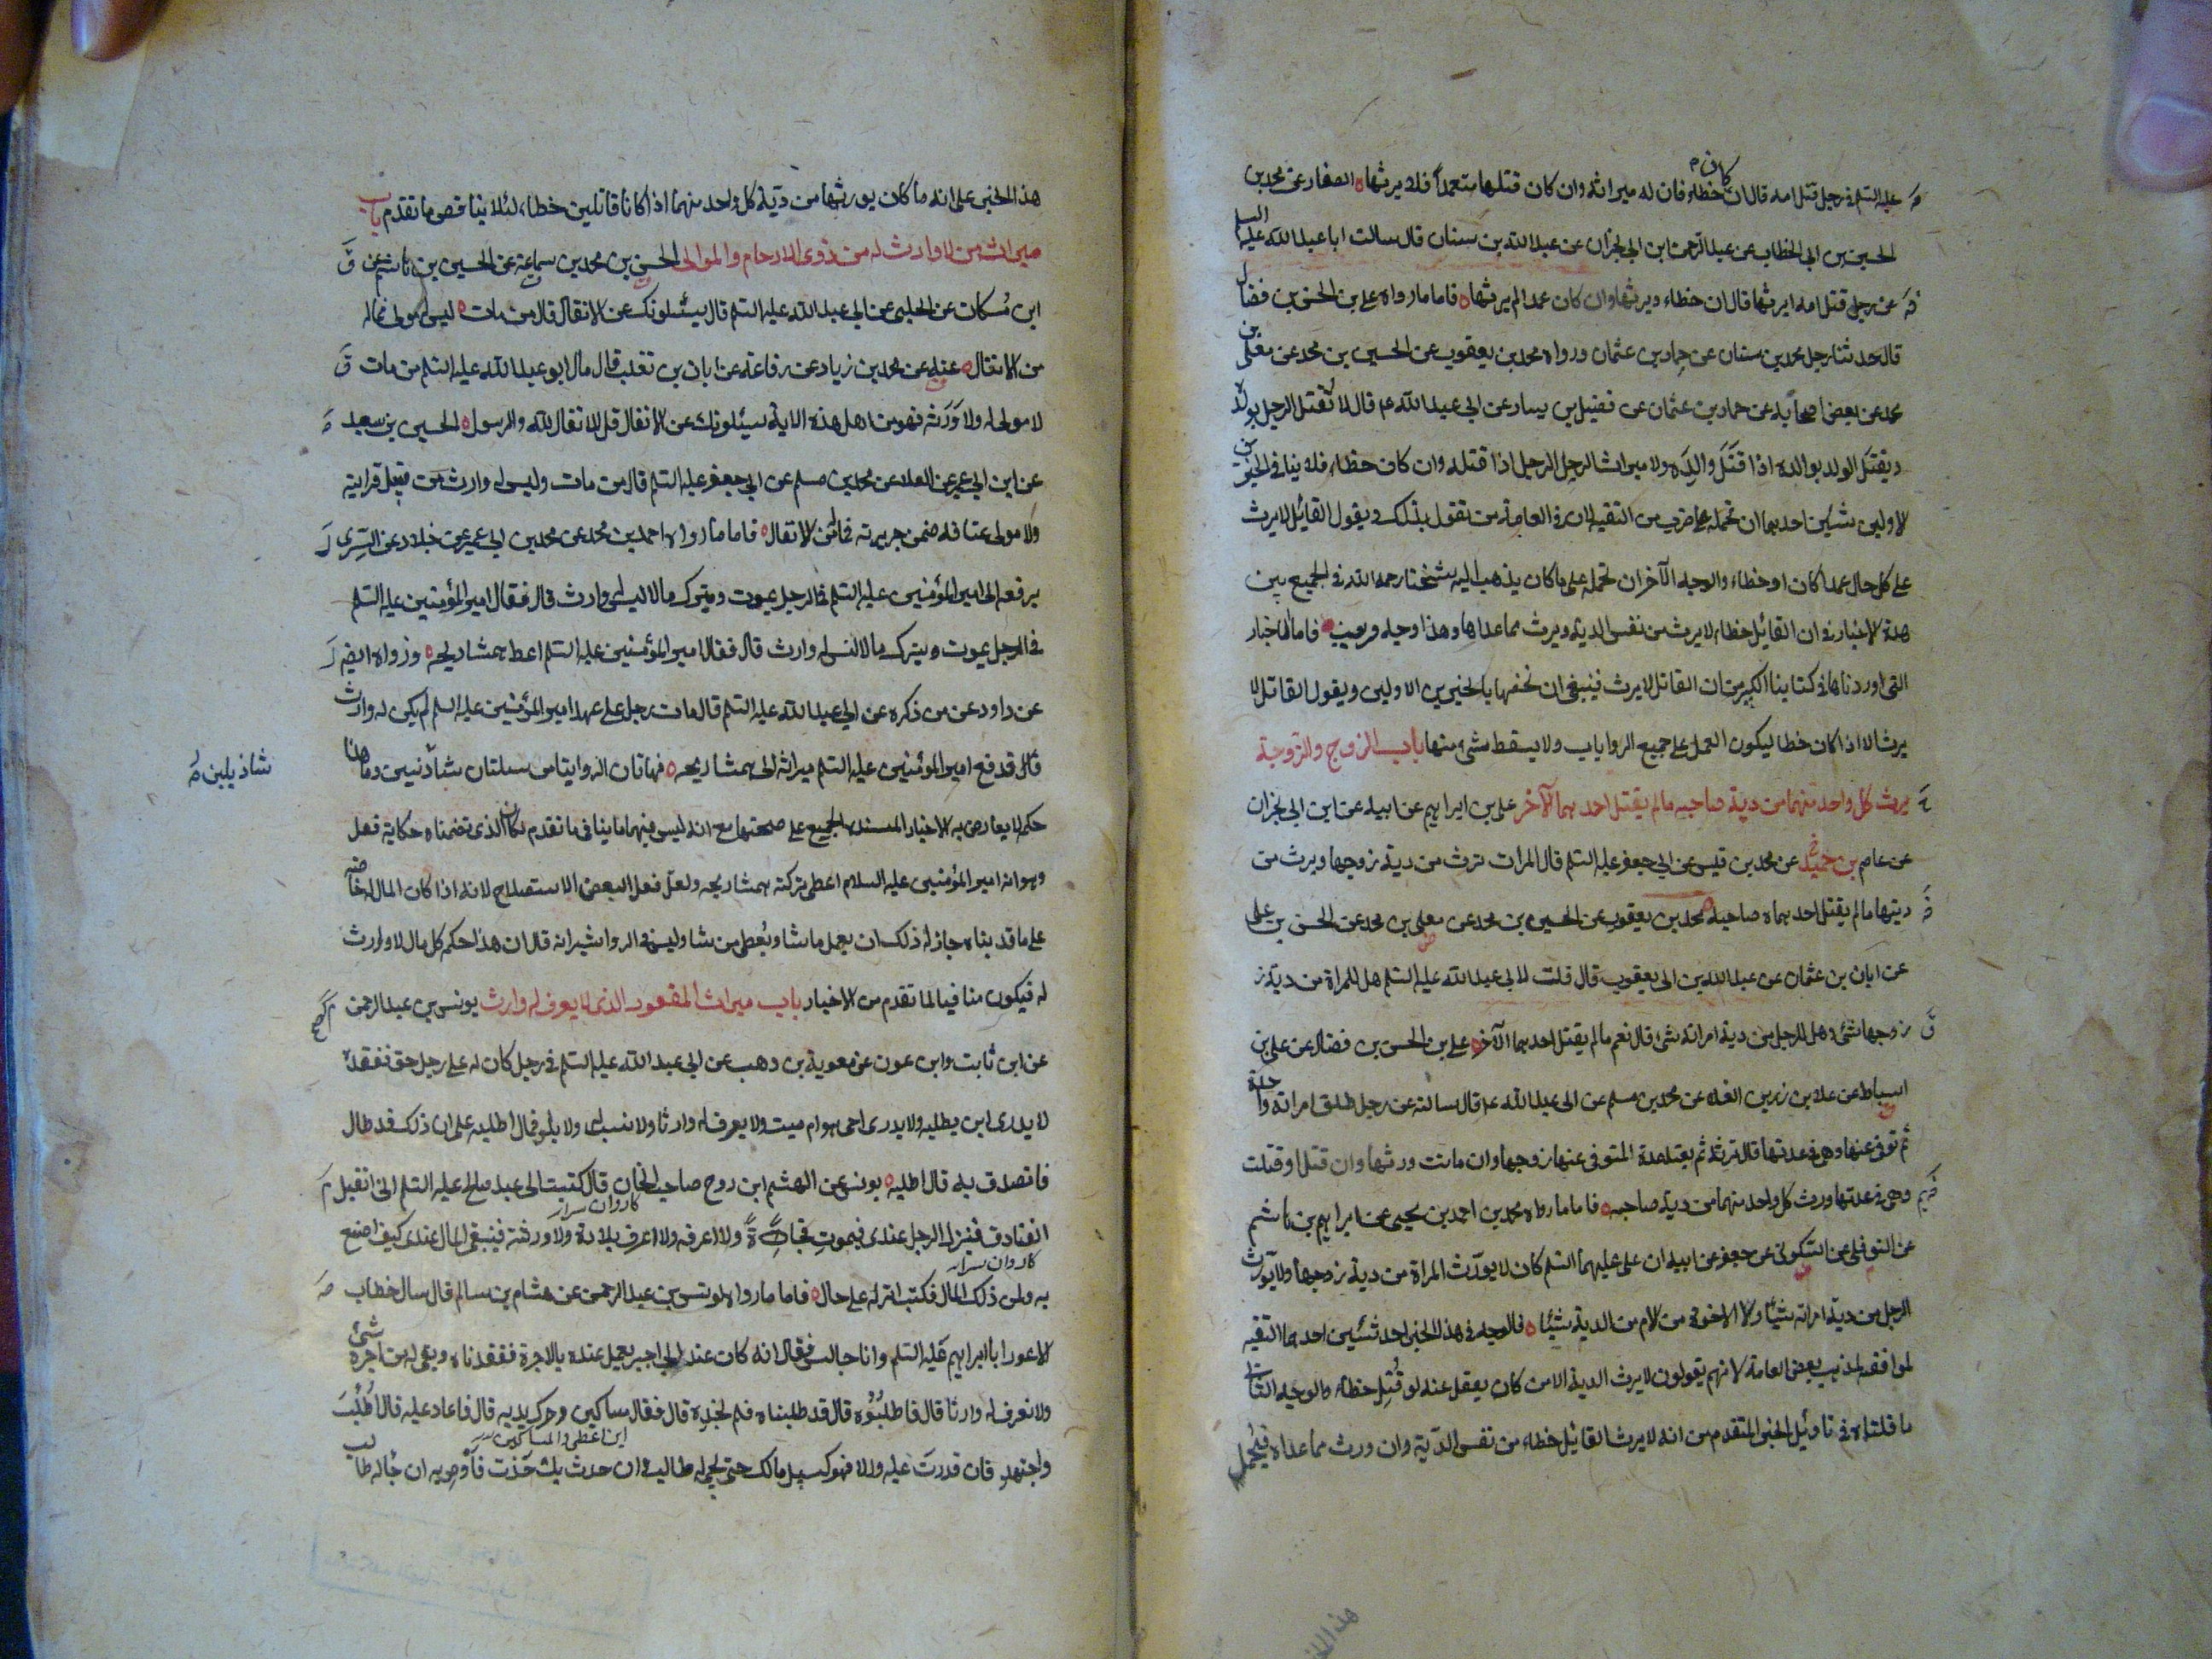 عليه السلم في رجل قتل امه قال ان كان خطاء فان له ميراثه وان كان قتلها متعمداً فلا يرثها الصفار عن محمد بن
الحسين بن ابي الخطاب عن عبد الرحمن ابن ابي نجران عن عبد الله بن سنان قال سالت ابا عبد الله عليه السلم
عن رجل قتل امه ايرثها قال ان خطاء ويرثها وان كان عمدا لم يرثها فاما مارواه علي بن الحسن بن فضال
قال حدثنا رجل محمد بن سنان عن حماد بن عثمان ورواه محمد بن يعقوب عن الحسين بن محمد عن معلى بن
محمد عن بعض اصحابه عن حماد بن عثمان عن فضيل بن يسار عن ابي عبد الله عم قال لا تقتل الرجل بولده
ويقتل الولد بوالده اذا قتل والده ولا ميراث الرجل الرجل اذا قتله وان كان خطاء فلا ينافي الخبرين
الاولين شيئين احدهما ان نحمله على ضرب من التقيه لان في العامة من تقول بذلك ويقول القاتل لا يرث
على كل حال عمدا كان او خطاء والوجه الآخر ان نحمله على ما كان يذهب اليه شيخنا رحمه الله في الجميع بين
هذة الاخبار في ان القاتل خطاء لا يرث من نفس الدية ويرث مما عداها وهذا وجه قريب فاما الاخبار
التي اوردناها في كتابنا الكبير من ان القاتل لا يرث فينبغي ان نخصها بالخبرين الاولين ويقول القاتل لا
يرث الا اذا كان خطا ليكون العمل على جميع الروايات ولا يسقط شئ منها باب الزوج والزوجة
يرث كل واحد منهما من دية صاحبه ما لم يقتل احدهما الآخر علي بن ابراهيم عن ابيه عن ابن ابي نجران
عن عاصم بن حميد عن محمد بن قيس عن ابي جعفر عليه السلم قال المرات ترث من دية زوجها ويرث من
ديتها ما لم يقتل احدهما صاحبه محمد بن يعقوب عن الحسين بن محمد عن معلى بن محمد عن الحسن بن علي
عن ابان بن عثمان عن عبد الله بن ابي يعقوب قال قلت لابي عبد الله عليه السلم هل للمراة من دية ز
زوجها شئ وهل للرجل من دية امراته شئ قال نعم ما لم يقتل احدهما الآخر علي بن الحسن بن فضال عن علي بن
اسباط عن علا بن زرين القلا عن محمد بن مسلم عن ابي عبد الله عم قال سالته عن رجل طلق امراته واحدة
ثم توفي عنها وهي في عدتها قال ترثه ثم تعتد عدة المتوفى عنها زوجها وان ماتت ورثها وان قتل او قتلت
وهي في عدتها ورث كل واحد منهما من دية صاحبه فاما مارواه محمد بن احمد بن يحيى عن ابراهيم بن هاشم
عن النوفلي عن السكوني عن جعفر عن ابيه ان علي عليهما السلم كان لا يورث المراة من دية زوجها ولا يورث
الرجل من دية امراته شيئا ولا الاخوة من الام من الدية شيئا فالوجه في هذا الخبر احد شيئين احدهما التقيه
لموافقه لمذهب بعض العامة لانهم يقولون لا يرث الدية الا من كان يعقل عنه لو قتل خطاء والوجه الثاني
ما قلناه في تاويل الخبر المتقدم من انه لا يرث القاتل خطاء من نفس الدية وان ورث مما عداه فيحمل
هذا الخبر
هذا الخبر على انه ما كان يورثها من دية كل واحد منهما اذا كانا قاتلين خطاء، لئلا يناقض ما تقدم باب
ميراث من لا وارث له من ذوي الارحام والموالي الحسن بن محمد بن سماعة عن الحسين بن هاشم عن
ابن مسكان عن الحلبي عن ابي عبد الله عليه السلم قال يسئلونك عن الانفال قال من مات ليس له مولى فماله
من الانفال عنه عن محمد بن زياد عن رفاعة عن ابان بن تغلب قال قال ابو عبد الله عليه السلم من مات
لا مولى له ولا ورثه فهو من اهل هذه الاية يسئلونك عن الانفال قل الانفال لله والرسول الحسين بن سعيد
عن ابن ابي عمير عن العلا عن محمد بن مسلم عن ابي جعفر عليه السلم قال من مات وليس له وارث من قبل قرابته
ولا مولى عتاقه ضمن جريرته فماله من الانفال فاما مارواه احمد بن محمد عن محمد بن ابي عمير عن خلاد عن السري
يرفعه الى امير المؤمنين عليه السلم في الرجل يموت ويترك مالا ليس له وارث قال فقال امير المؤمنين عليه السلم
في الرجل يموت ويترك مالا ليس له وارث قال فقال امير المؤمنين عليه السلم اعط همشاريجه وزواه ايضم
عن داود عن من ذكره عن ابي عبد الله عليه السلم قال مات رجل على عهد امير المؤمنين عليه السلم لم يكن له وارث
فدفع امير المؤمنين عليه السلم ميراثه الى همشاريجه فهاتان الروايتان مرسلتان شاذتين وما هذا
شاذ يلين
حكمه لا يعارض به الاخبار المسنده المجمع على صحتها مع انه ليس فيهما ما ينافي ما تقدم لان الذي تضمناه حكاية فعل
وهو انه امير المؤمنين عليه السلام اعطى تركته همشاريجه ولعل فعل البعض الاستصلاح لانه اذا كان المال له خاصة
على ما قد بيناه جاز له ذلك ان يعمل ما شا ويعطي من شا وليس في الروايتين انه قال ان هذا حكم كل مال لا وارث
له فيكون منافيا لما تقدم من الاخبار باب ميراث المفقود الذي لا يعرف له وارث يونس بن عبد الرحمن
عن ابن ثابت وابن عون عن معوية بن وهب عن ابي عبد الله عليه السلم في رجل كان له على رجل حق ففقده
لا يدري اين يطلبه ولا يدري احي هوام ميت ولا يعرف له وارثا ولا نسبا ولا بلد قال اطلبه على ان ذلك قد طال
فاتصدق به قال اطلبه يونس عن الهشيم ابن روح صاحب الخان قال كتبت الى عبد صالح عليه السلم اني اتقبل
كاروان سرار
الفنادق فينزل الرجل عندي فيموت فجاة ولا اعرفه ولا اعرف بلاده ولا ورثته فيبقى المال عندي كيف اصنع
كاروان سرار
به ولمن ذلك المال فكتب اتركه على حاله فاما مارواه يونس بن عبد الرحمن عن هشام بن سالم قال سال خطاب
الاعور ابا ابراهيم عليه السلم وانا جالس فقال انه كان عند ابي اجير يعمل عنده بالاجرة ففقدناه وبقي له من اجره شئ
ولا نعرف له وارثا قال فاطلبوه قال قد طلبناه فلم نجده قال فقال مساكين وحرك يديه قال فاعاد عليه قال اطلب
اين اعطي والمساكين
واجتهد فان قدرت عليه والا فهو كسبيل مالك حتى يجئ له طالب فان حدث بك حدث فاوص به ان جاله طالب